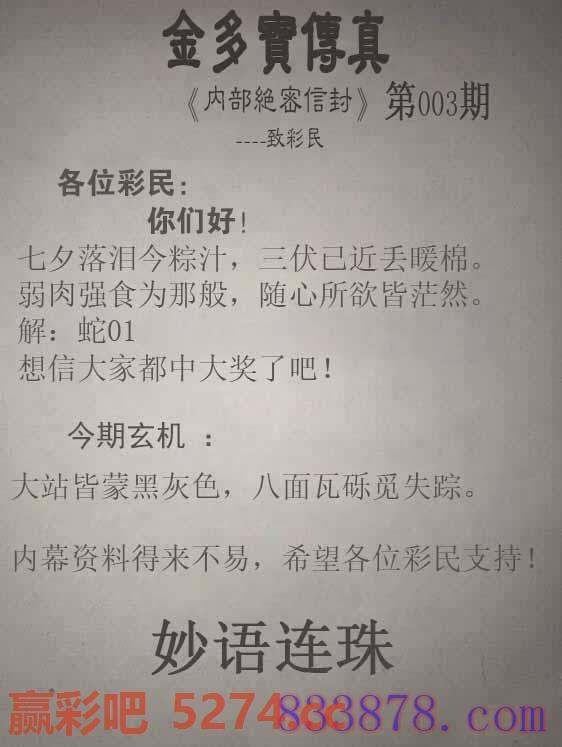 金多寶傳真
《内部絶密信封》第003期
----致彩民
各位彩民:
你们好!
七夕落泪今粽汁，三伏已近丢暖棉。
弱肉强食为那般，随心所欲皆茫然。
解：蛇01
想信大家都中大奖了吧!
今期玄机 ：
大站皆蒙黑灰色，八面瓦砾觅失踪。
内幕资料得来不易，希望各位彩民支持!
妙语连珠
赢彩吧 5274.cc
833878.com